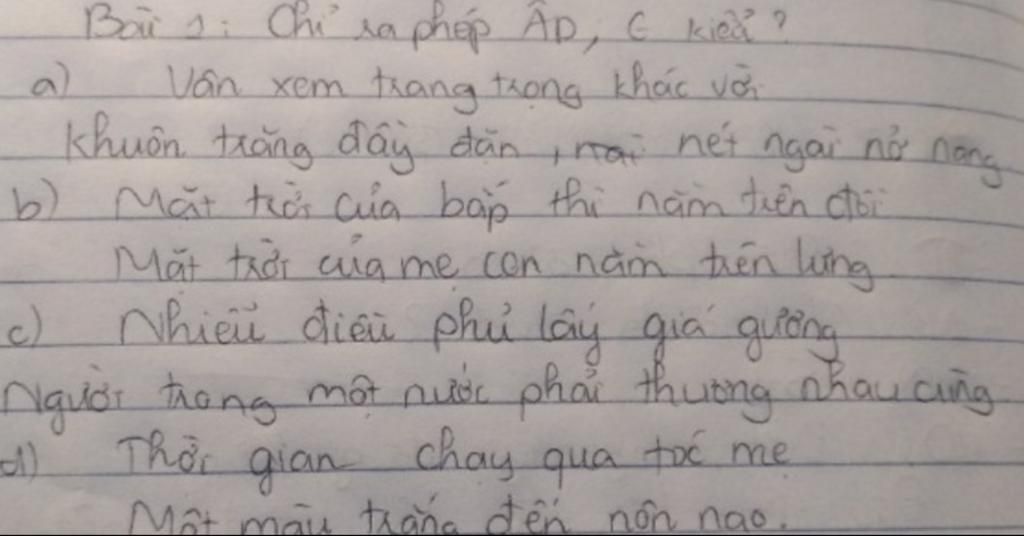 Bài 1: Chỉ ra phép ÂD, G kiểu?
a) Vân xem trang trọng khác vời
Khuôn trăng đầy đặn, nét ngài nở nang
b) Mặt trời của bắp thì nằm trên đồi
Mặt trời của mẹ con nằm trên lưng
c) Nhiễu điều phủ lấy giá gương
Người trong một nước phải thương nhau cùng
d) Thời gian chạy qua tóc mẹ
Một màu trắng đến nôn nao.